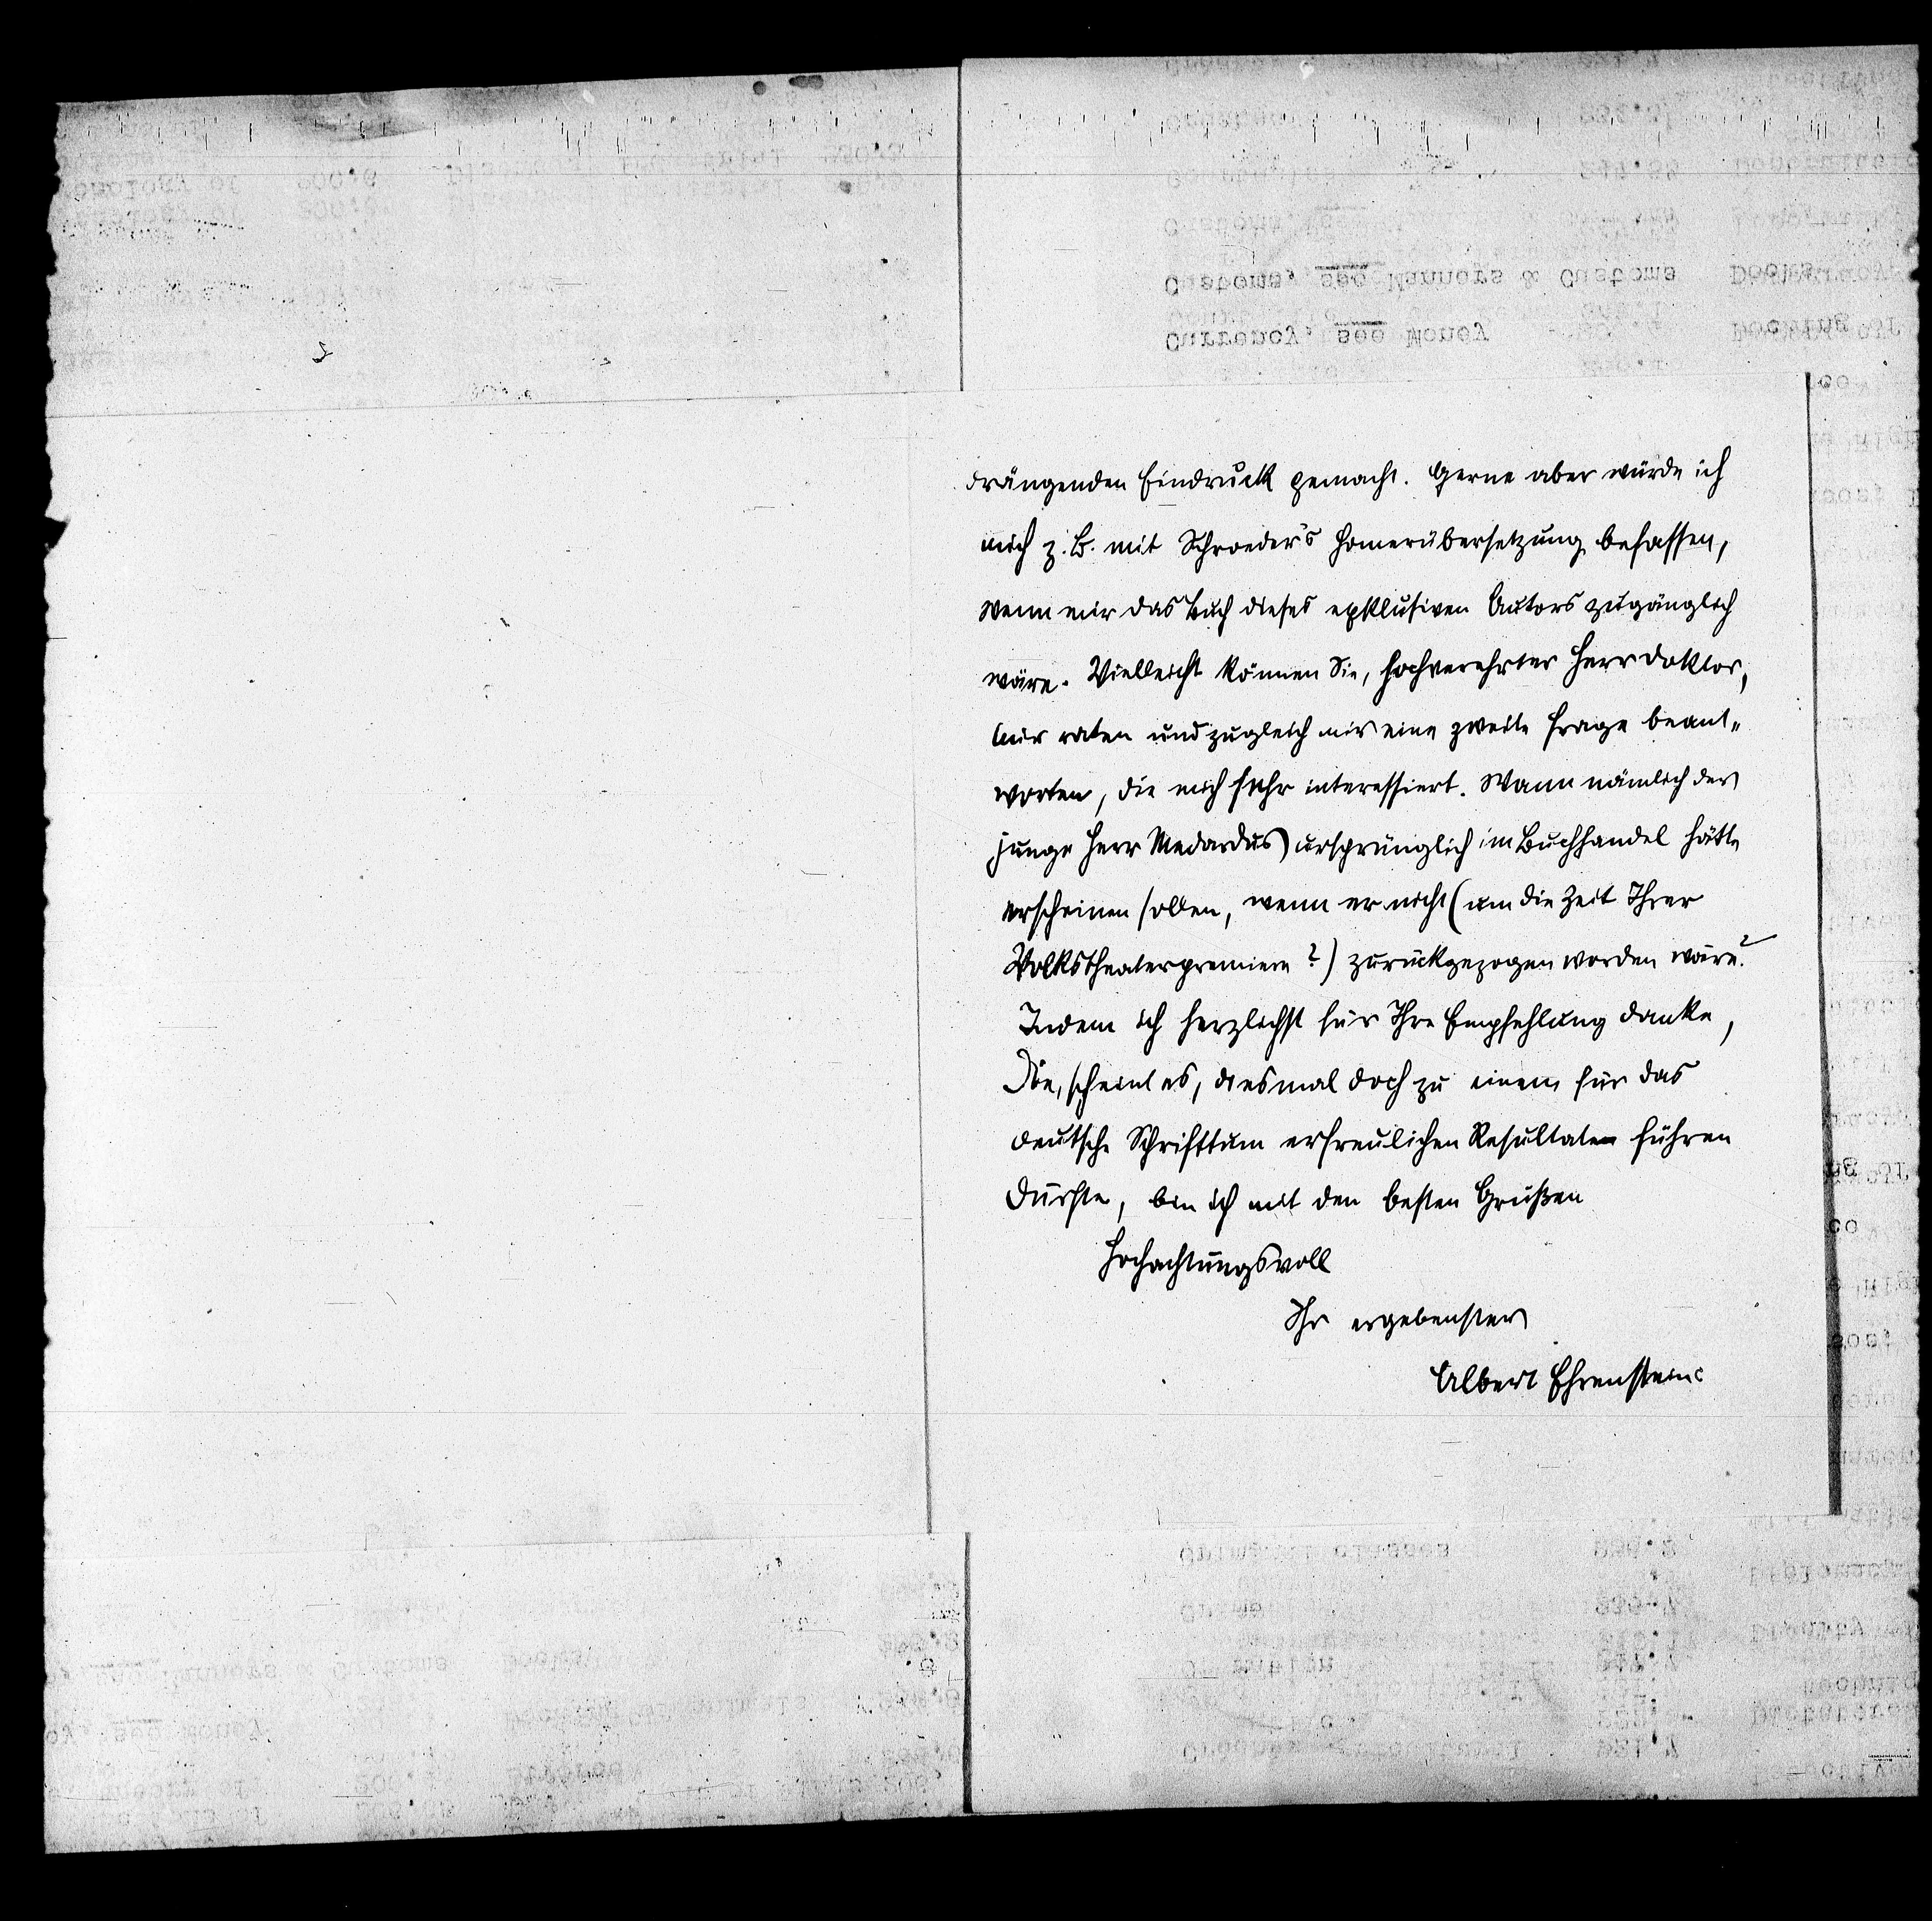 drängenden Eindruck gemacht. Gerne aber würde ich
mich z. B. mit Schroeder's Homerübersetzung befassen,
wenn mir das Buch dieses exklusiven Autors zugänglich
wäre. Vielleicht können Sie, hochverehrter Herr Doktor,
mir raten und zugleich mir eine zweite Frage beant„
worten, die mich sehr interessiert. Wann nämlich der
junge Herr Medardus ursprünglich im Buchhandel hätte
erscheinen sollen, wenn er nicht (um die Zeit Ihrer
Volkstheaterpremiere?) zurückgezogen worden wäre?
Indem ich herzlichst für Ihre Empfehlung danke,
Die, scheint es, diesmal doch zu einem für das
deutsche Schrifttum erfreulichen Resultaten führen
dürfte, bin ich mit den besten Grüßen
Hochachtungsvoll
Ihr ergebenster
Albert Ehrenstein
Customs, see Manners & Customs
Currency, see Money